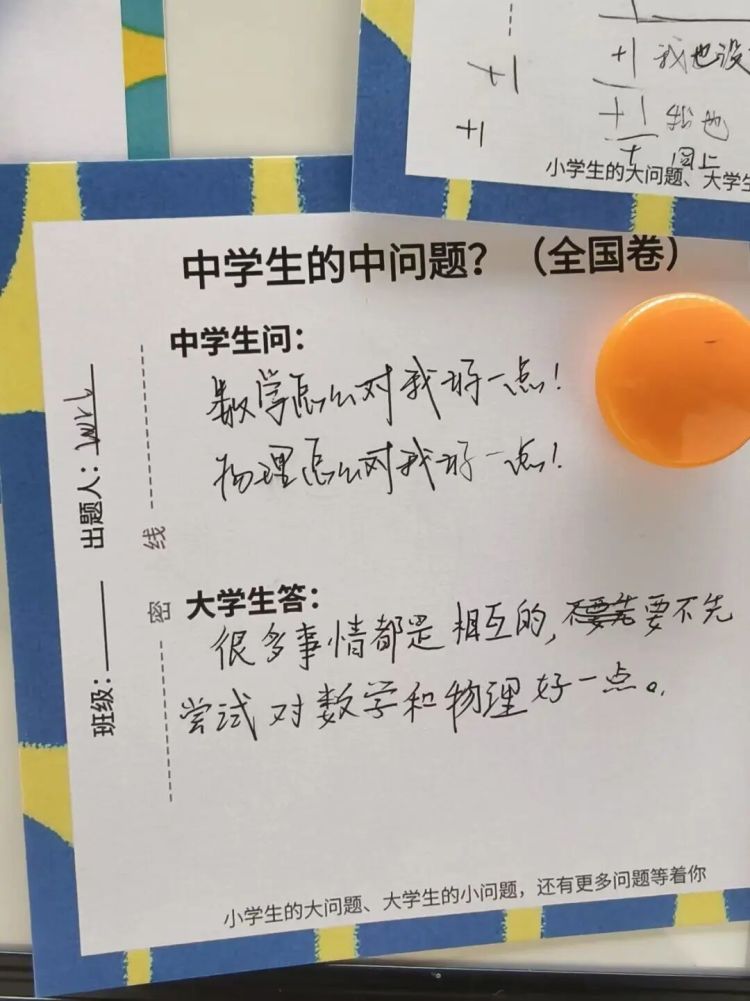 +1
+1
+1 我也没
+1 我也
+ 同上
小学生的大问题、大学生
中学生的中问题？（全国卷）
中学生问：
数学怎么对我好一点！
物理怎么对我好一点！
大学生答：
很多事情都是相互的，不要先要不先
尝试对数学和物理好一点。
小学生的大问题、大学生的小问题，还有更多问题等着你
出题人：wrl
班级：
线
密